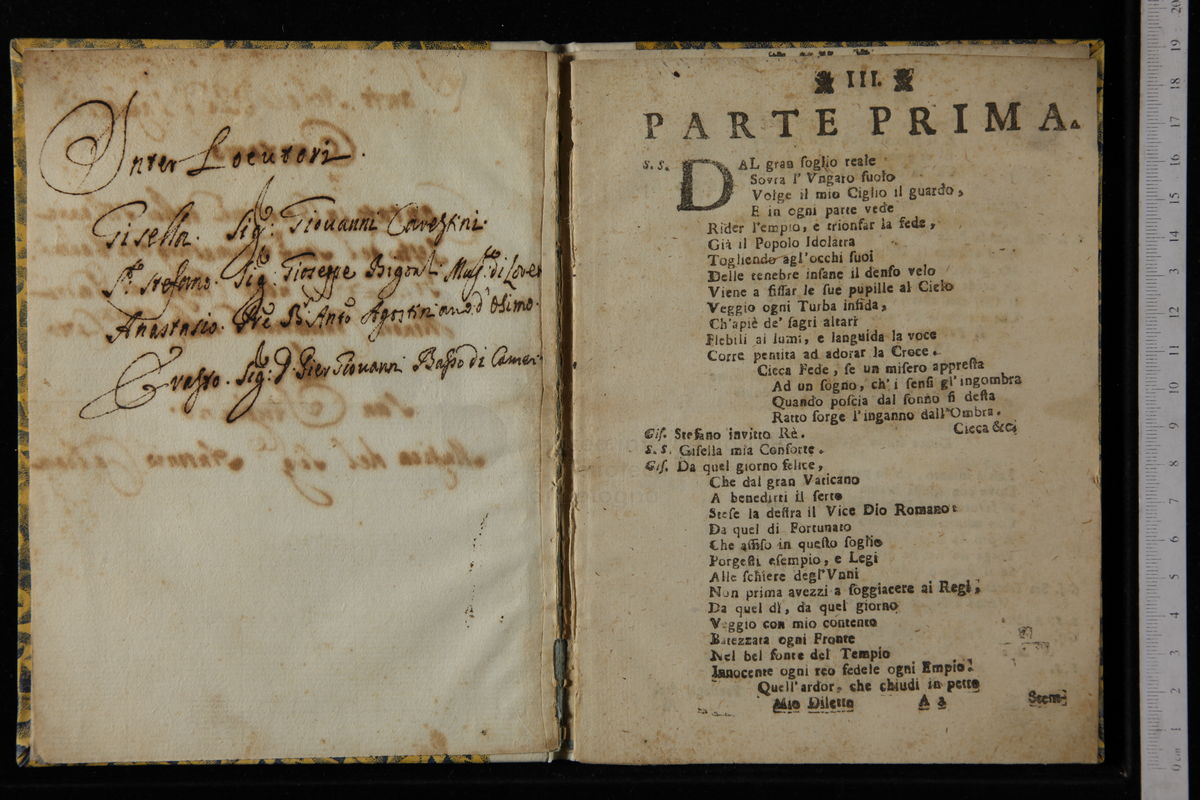 Inter Locutori.
Gisella. Sig: Giovanni Carestini.
S. Stefano. Sig: Gioseppe Bigon
Anastasio. Agostiniano d'Osimo.
Erasto. Sig: D. Pier Giovanni Basso di Camer
III.
PARTE PRIMA.
S. S. DAL gran ſoglio reale
Sovra l' Vngaro ſuolo
Volge il mio Ciglio il guardo,
E in ogni parte vede
Rider l'empio, e trionfar la fede,
Già il Popolo Idolatra
Togliendo agl'occhi ſuoi
Delle tenebre inſane il denſo velo
Viene a fiſſar le ſue pupille al Cielo
Veggio ogni Turba infida,
Ch'apiè de' ſagri altari
Flebili ai lumi, e languida la voce
Corre pentita ad adorar la Croce.
Cieca Fede, ſe un miſero appreſta
Ad un ſogno, ch' i ſenſi gl' ingombra
Quando poſcia dal ſonno ſi deſta
Ratto ſorge l'inganno dall'Ombra.
Cieca &c.
Giſ. Stefano invitto Rè.
S. S. Giſella mia Conſorte.
Giſ. Da quel giorno felice,
Che dal gran Vaticano
A benedirti il ſerto
Steſe la deſtra il Vice Dio Romano:
Da quel dì Fortunato
Che aſſiſo in queſto ſoglio
Porgeſti eſempio, e Legi
Alle ſchiere degl'Vnni
Non prima avezzi a ſoggiacere ai Regi;
Da quel dì, da quel giorno
Veggio con mio contento
Batezzata ogni Fronte
Nel bel fonte del Tempio
Innocente ogni reo fedele ogni Empio!
Quell'ardor, che chiudi in petto
Mio Diletto
A 2 Stem-